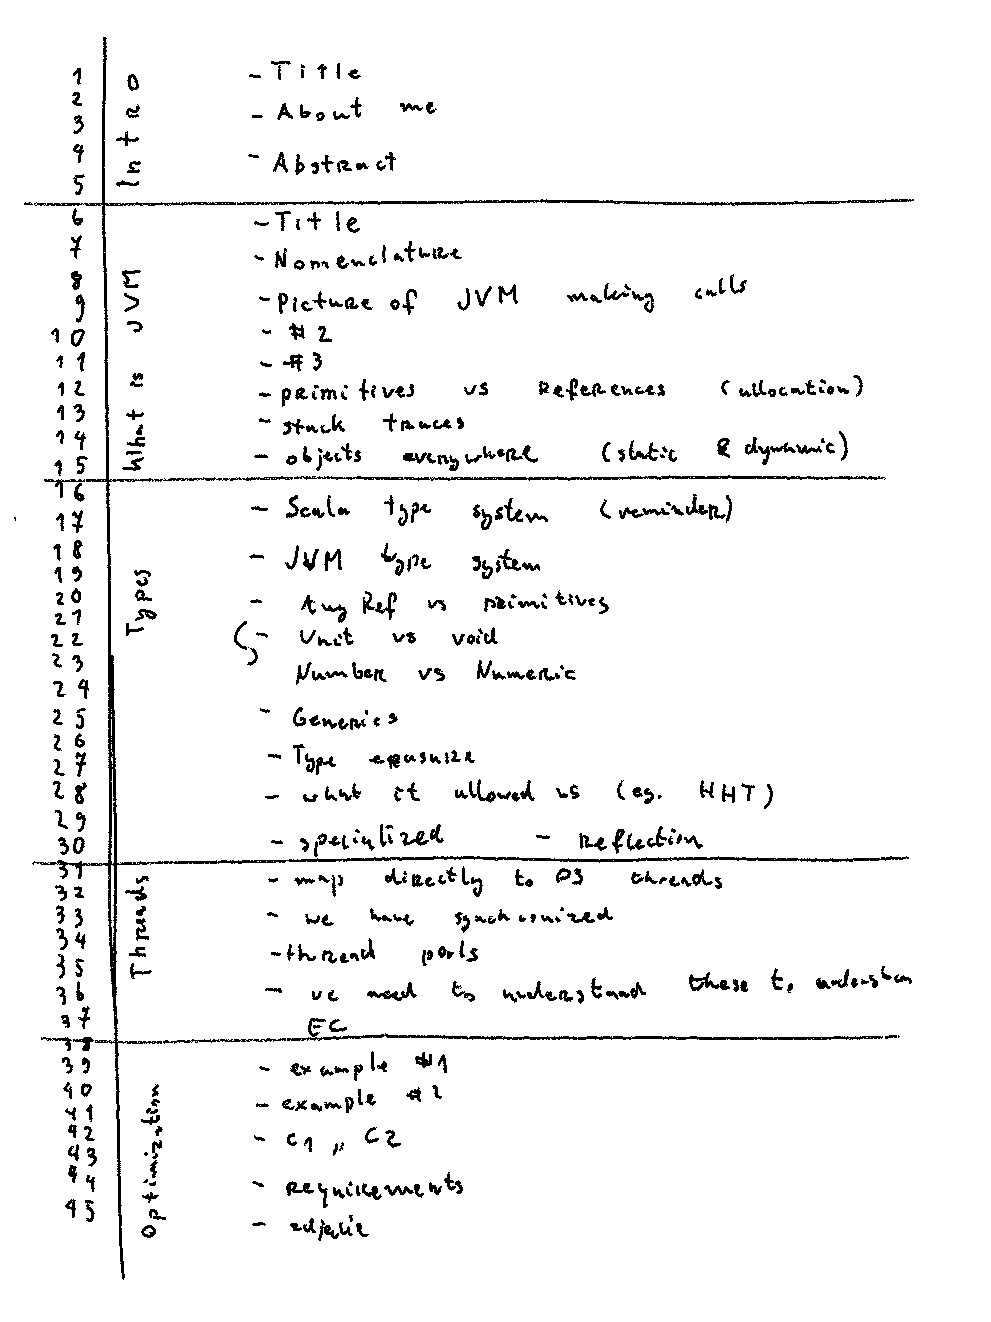 1
2
3
4
5
Intro
- Title
- About me
- Abstract
6
7
8
9
10
11
12
13
14
15
What is JVM
- Title
- Nomenclature
- Picture of JVM making calls
- #2
- #3
- primitives vs References (allocation)
- stack traces
- objects everywhere (static & dynamic)
16
17
18
19
20
21
22
23
24
25
26
27
28
29
30
Types
- Scala type system (reminder)
- JVM type system
- Any Ref vs primitives
- Unit vs void
Number vs Numeric
- Generics
- Type
- what it allowed us (eg. HHT)
- specialized - Reflection
31
32
33
34
35
36
37
Threads
- map directly to OS threads
- we have synchronized
- thread pools
- we need to understand these to
EC
38
39
40
41
42
43
44
45
Optimization
- example #1
- example #2
- C1 ,, C2
- requirements
-